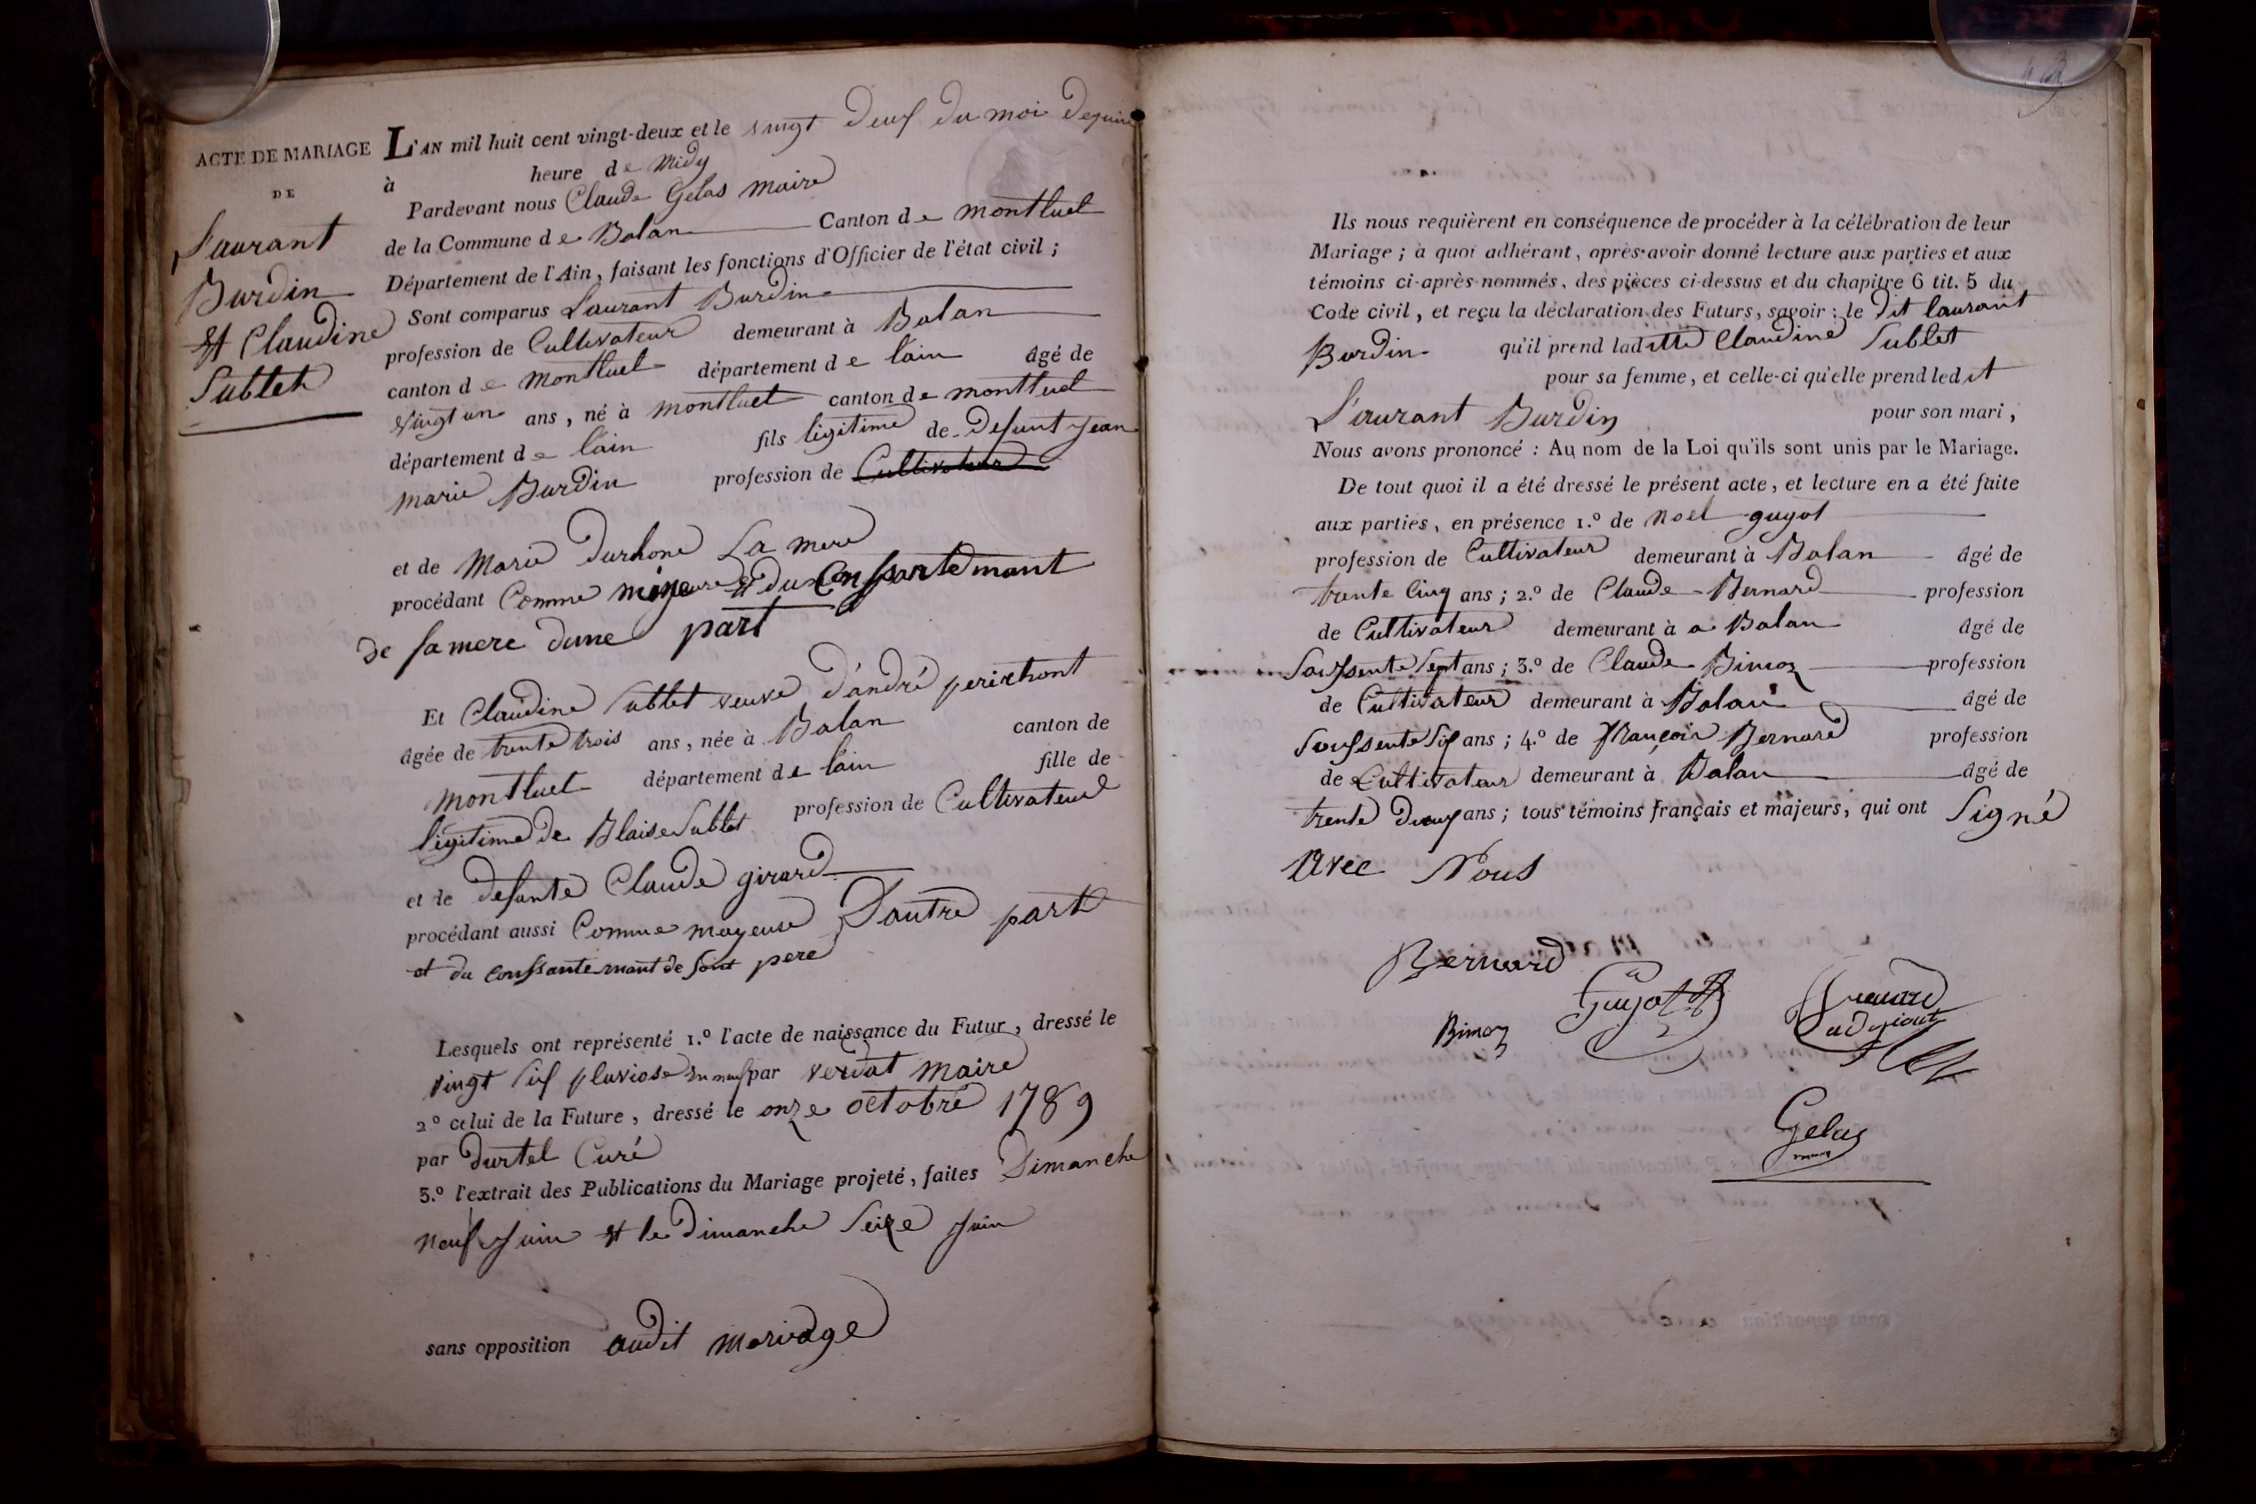 ACTE DE MARIAGE
DE
Laurant
Burdin
et Claudine
Sublet
L'AN mil huit cent vingt-deux et le vingt deux du moi dejuin
à heure de Midy
Pardevant nous Claude Gelas maire
de la Commune de Balan Canton de montluel
Département de l'Ain, faisant les fonctions d'Officier de l'état civil ;
Sont comparus Laurant Burdin
profession de Cultivateur demeurant à Balan
canton de Montluel département de lain âgé de
vingt un ans, né à montluel canton de montluel
département de lain fils ligitime de Defunt jean
marie Burdin profession de Cultivateur
et de Marie durhone La mere
procédant Comme mineure et du Conssantemant
de sa mere dune part
Et Claudine Sublet veuve d'andré perichont
âgée de trente trois ans, née à Balan canton de
montluel département de lain fille de
ligitime de Blaise Sublet profession de Cultivateur
et de defunte Claude girard
procédant aussi Comme mayeure D'autre part
et du conssantemant de sont pere
Lesquels ont représenté 1.º l'acte de naissance du Futur, dressé le
vingt six pluviose an neuf par verdat maire
2.º celui de la Future, dressé le onze octobre 1789
par durtel Curé
3.º l'extrait des Publications du Mariage projeté, faites Dimanche
neuf Juin et le Dimanche Seize juin
sans opposition audit mariage
Ils nous requièrent en conséquence de procéder à la célébration de leur
Mariage ; à quoi adhérant, après-avoir donné lecture aux parties et aux
témoins ci-après-nommés, des pièces ci-dessus et du chapitre 6 tit. 5 du
Code civil, et reçu la déclaration des Futurs, savoir : le dit laurant
Burdin qu'il prend laditte Claudine Sublet
pour sa femme, et celle-ci qu'elle prend ledit
Laurant Burdin pour son mari,
Nous avons prononcé : Au nom de la Loi qu'ils sont unis par le Mariage.
De tout quoi il a été dressé le présent acte, et lecture en a été faite
aux parties, en présence 1.º de noel guyot
profession de Cultivateur demeurant à Balan âgé de
trente Cinq ans ; 2.º de Claude Bernard profession
de Cultivateur demeurant à a Balan âgé de
Soissente Sept ans ; 3.º de Claude Bimoz profession
de Cultivateur demeurant à Balan âgé de
Soissente Six ans ; 4.º de françois Bernard profession
de Cultivateur demeurant à Balan âgé de
trente deux ans ; tous témoins français et majeurs, qui ont Signé
Avec Nous
Bernard
Guyot
Bimoz
Gelas
maire